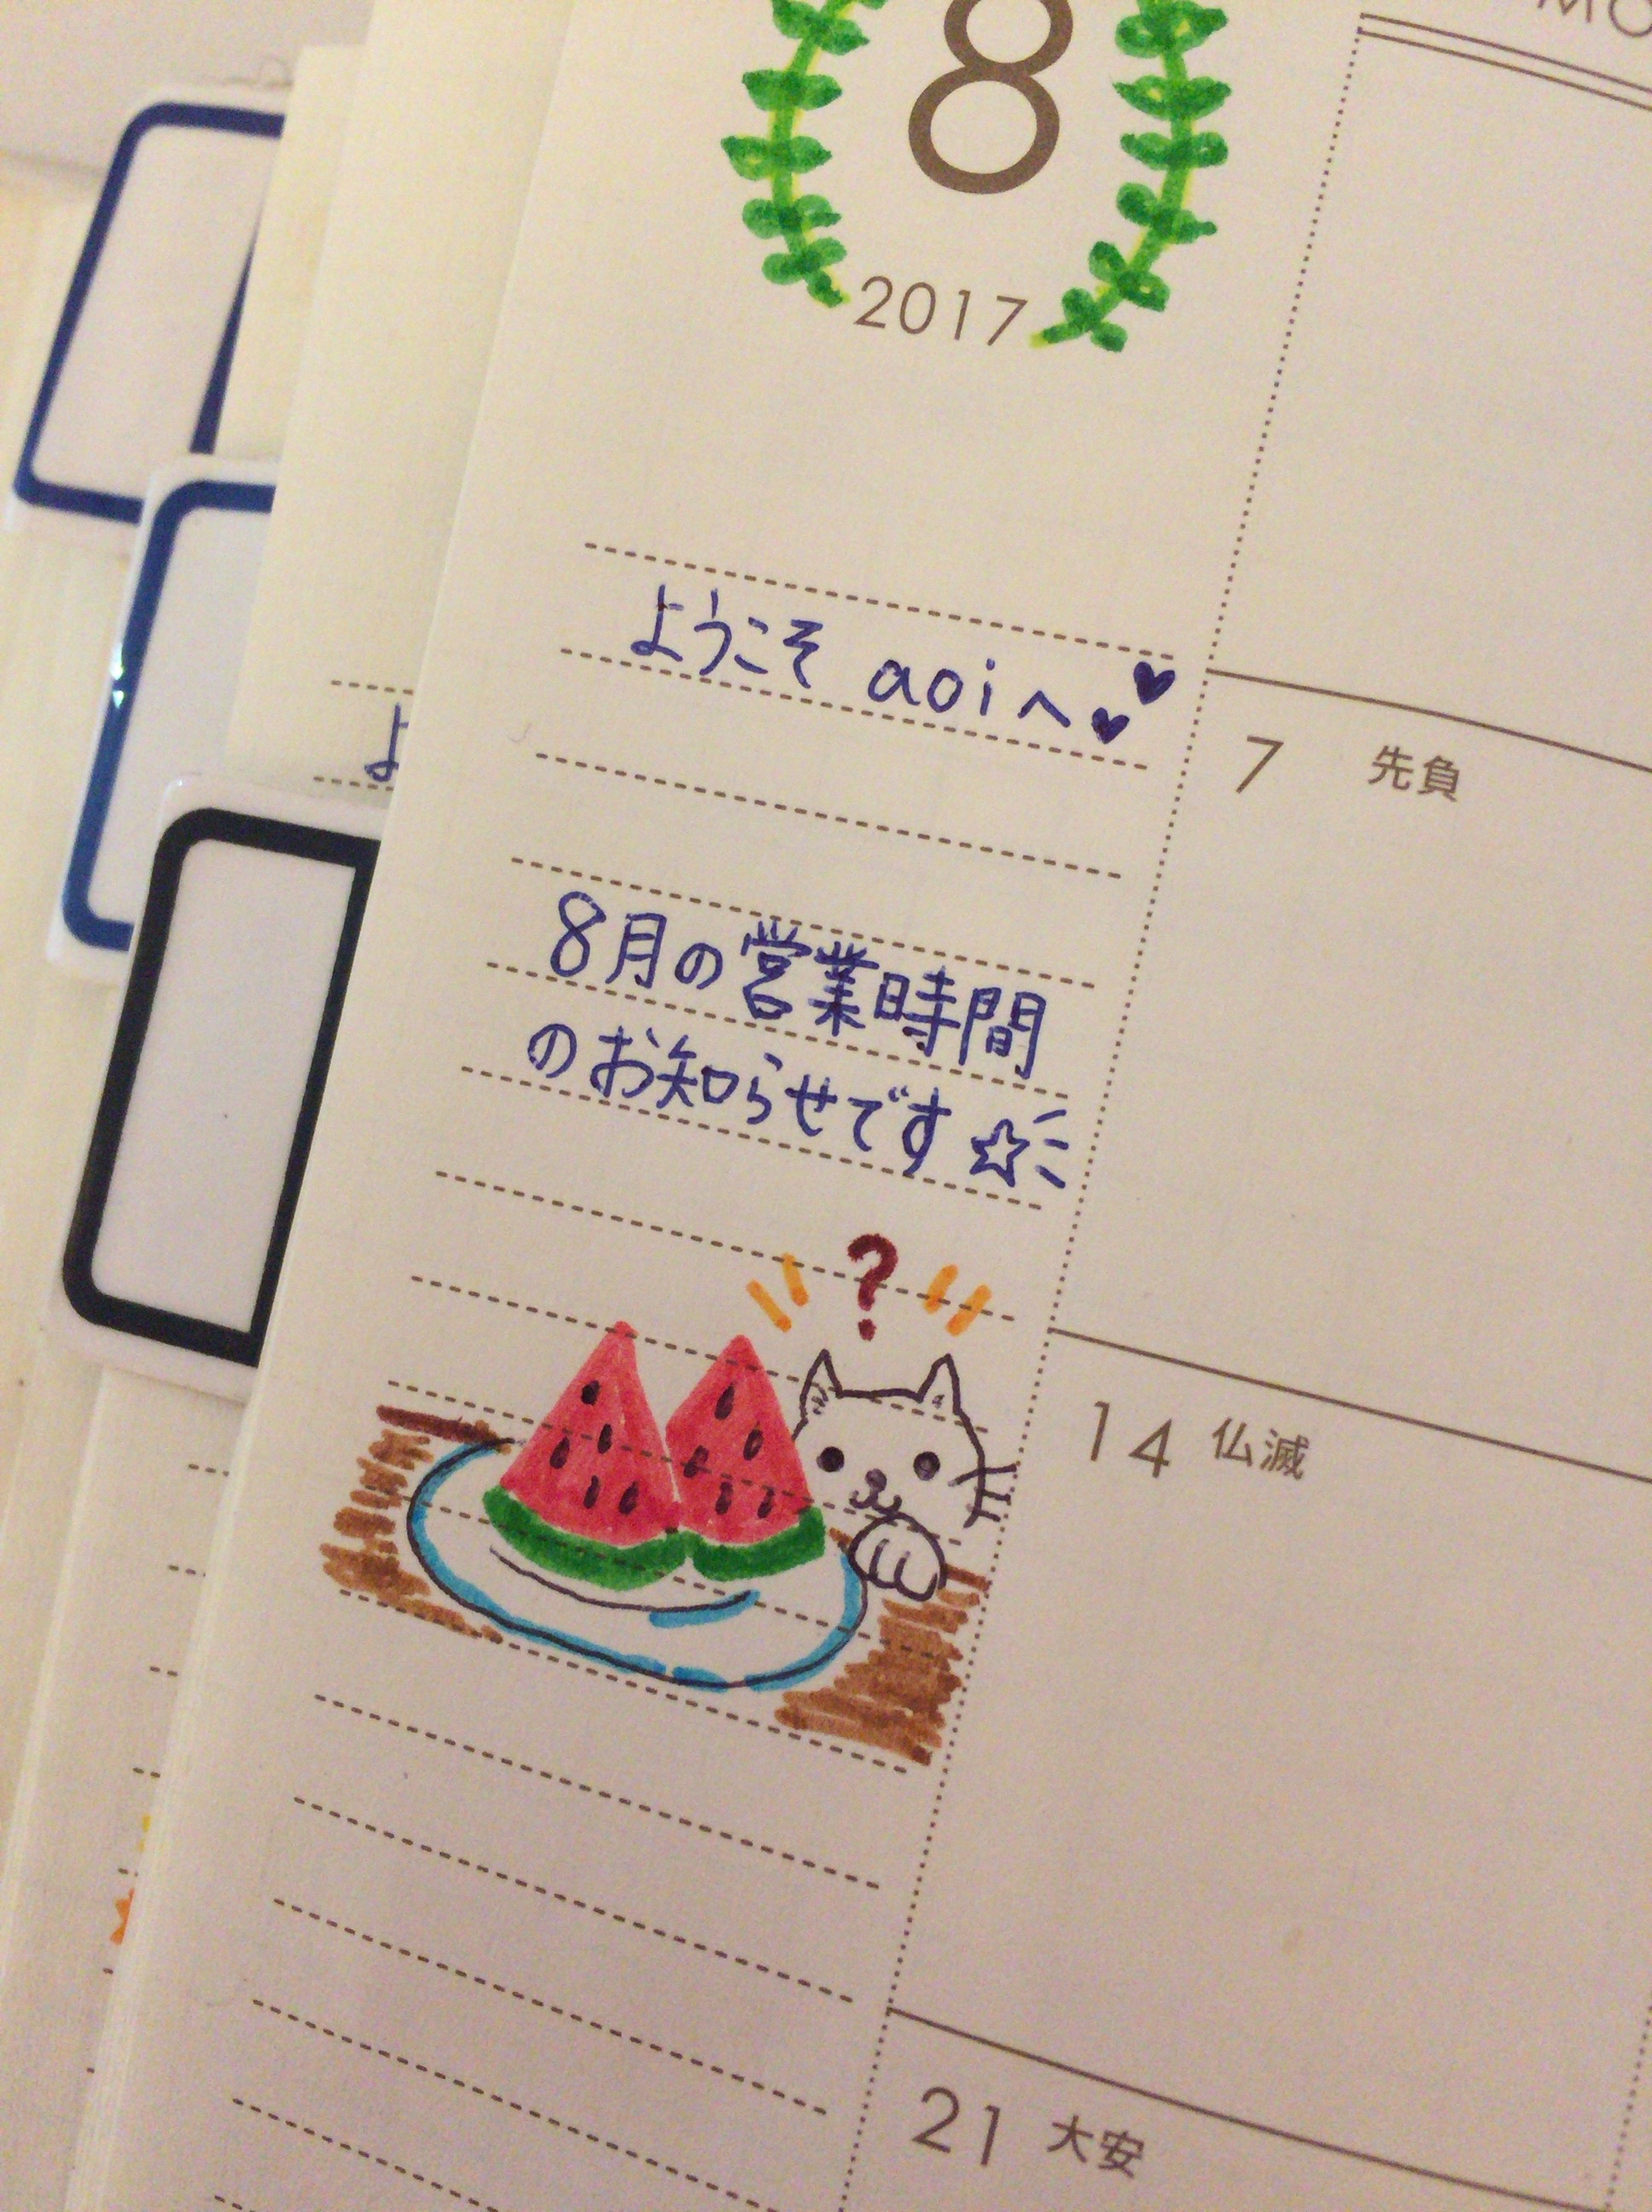 8
2017
MO
ようこそ aoiへ
よ
8月の営業時間
のお知らせです☆
?
7 先負
14 仏滅
21 大安